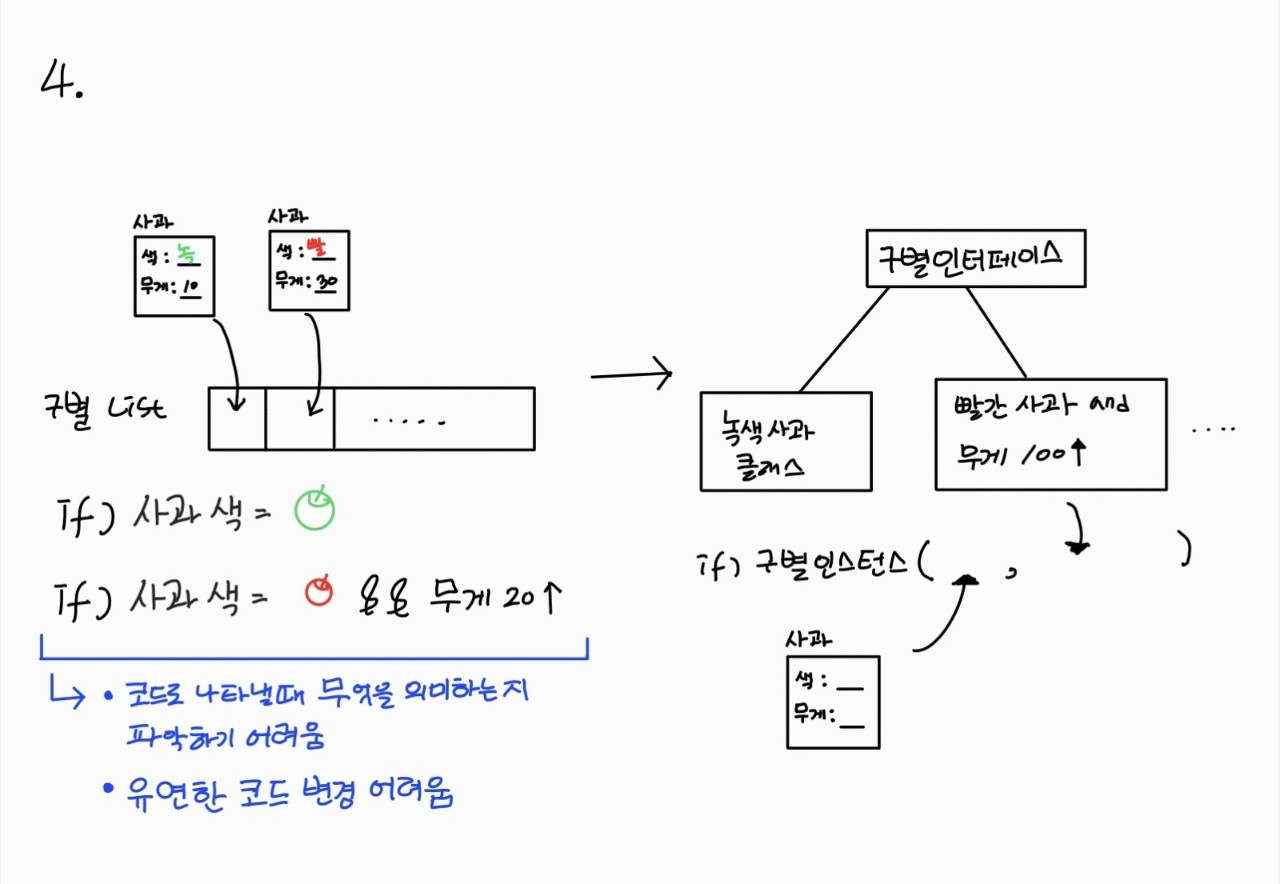 4.
사과
색 : 녹
무게 : 10
사과
색 : 빨
무게 : 30
구별 List
.....
if) 사과 색 =
if) 사과 색 = && 무게 20↑
• 코드로 나타낼때 무엇을 의미하는지
파악하기 어려움
• 유연한 코드 변경 어려움
구별인터페이스
녹색사과
클래스
빨간 사과 and
무게 100↑
....
if) 구별인스턴스( , )
사과
색 : __
무게 : __